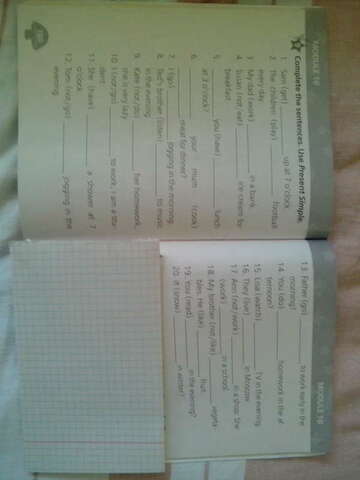 MODULE 1B
Complete the sentences. Use Present Simple.
1. Sam (get) ______ up at 7 o'clock.
2. The children (play) ______ football
every day.
3. My dad (work) ______ in a bank.
4. Susan (not/eat) ______ ice cream for
breakfast.
5. ______ you (have) ______ lunch
at 3 o'clock?
6. ______ your mum ______ (cook)
______ meat for dinner?
7. I (go) ______ jogging in the morning.
8. Ted's brother (listen) ______ to music
in the evening.
9. Kate (not/do) ______ her homework,
she is very lazy.
10. I (not/go) ______ to work, I am a stu-
dent.
11. She (have) ______ a shower at 7
o'clock.
12. Tom (not/go) ______ jogging in the
evening.
MODULE 1B
13. Father (go) ______ to work early in the
morning?
14. You (do) ______ homework in the af-
ternoon?
15. Lisa (watch) ______ TV in the evening.
16. They (live) ______ in Moscow.
17. Ann (not/work) ______ in a shop. She
(work) ______ in a school.
18. My brother (not/like) ______ vegeta-
bles. He (like) ______ fruit.
19. You (read) ______ in the evening?
20. It (snow) ______ in winter?